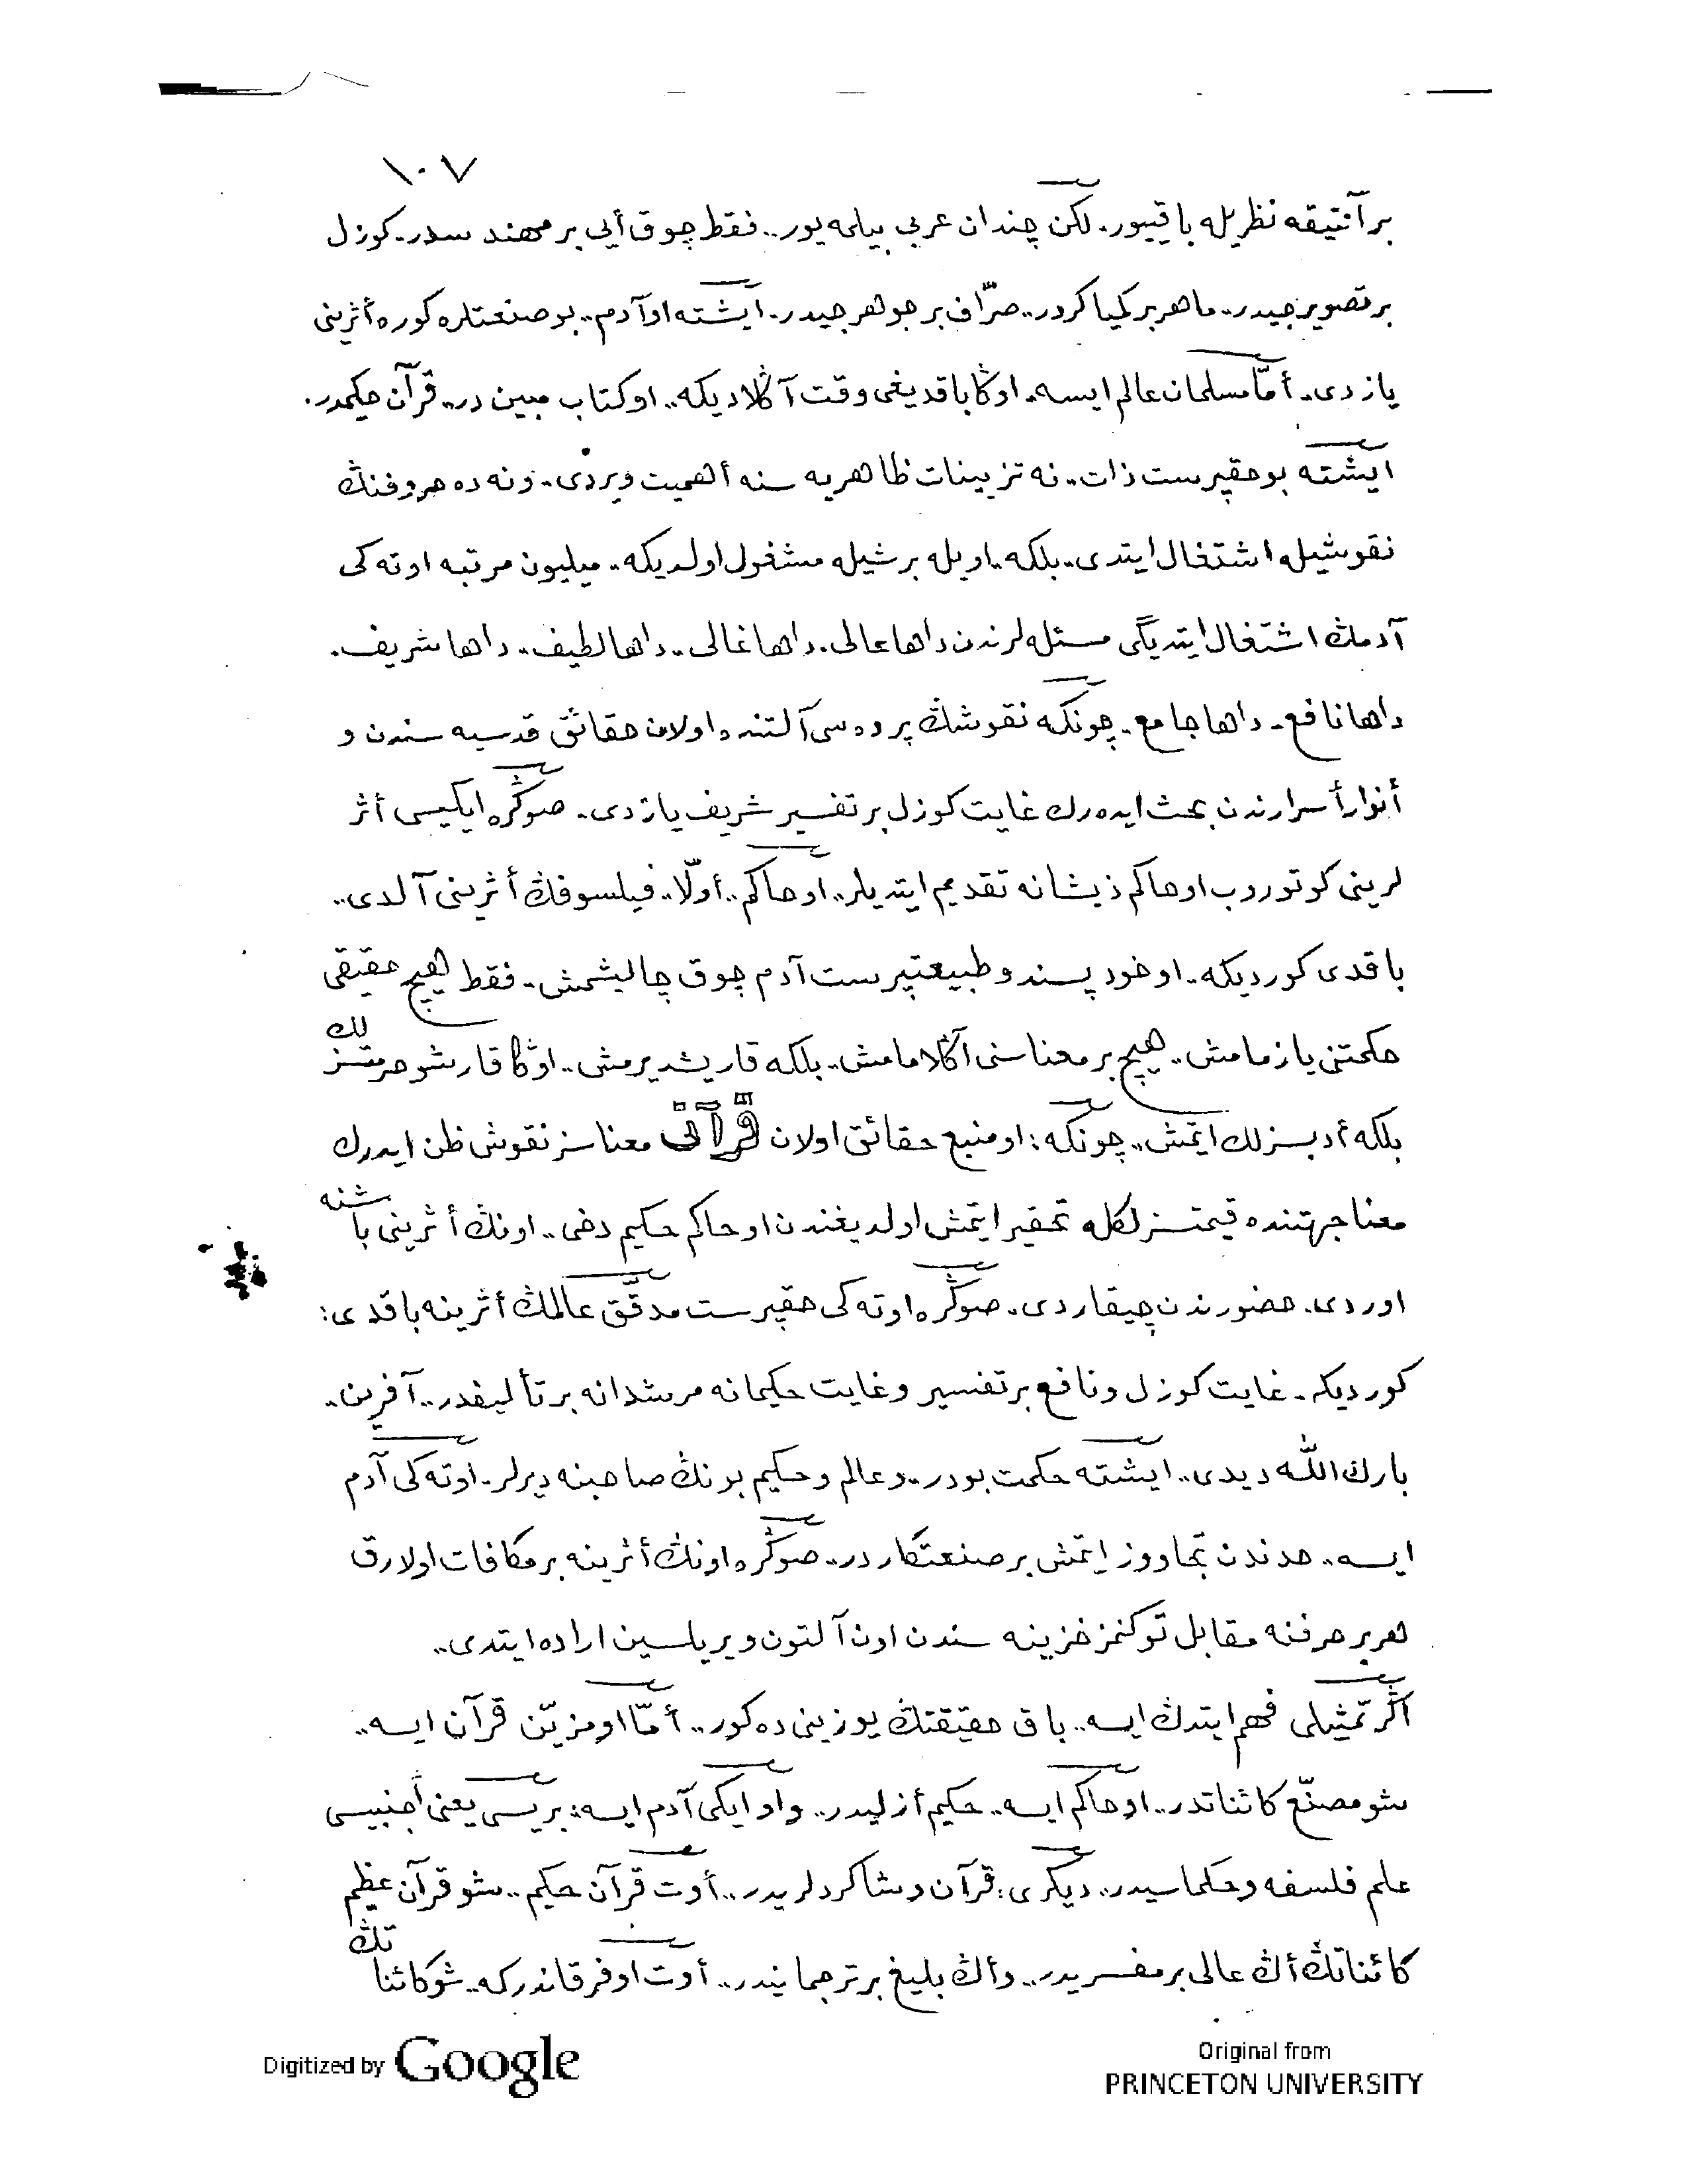 ١٠٧
بر آنتیقه نظریله باقییور. لكن چندان عربی بیلمه‌یور.. فقط چوق أیی بر مهندسدر. كوزل
بر تصویرجیدر.. ماهر بر كیماكردر.. صرّاف بر جوهرجیدر. ایشته او آدم.. بو صنعتلره كوره أثرینی
یازدی. أمّا مسلمان عالم ایسه. اوڭا باقدیغی وقت آڭلادیكه.. او كتاب مبین در.. قرآن حكیمدر.
ایشته بو حقپرست ذات.. نه تزیینات ظاهریه سنه أهمیت ویردی. ونه ده حروفنڭ
نقوشیله اشتغال ایتدی.. بلكه.. اویله بر شیله مشغول اولدیكه.. میلیون مرتبه اوته كی
آدمڭ اشتغال ایتدیگی مسئله لرندن داها عالی. داها غالی.. داها لطیف.. داها شریف.
داها نافع. داها جامع. چونكه نقوشڭ پرده سی آلتنده اولان حقائق قدسیه سندن و
أنوار أسرارندن بحث ایده رك غایت كوزل بر تفسیر شریف یازدی. صوڭره ایكیسی أثر
لرینی كوتوروب او حاكم ذیشانه تقدیم ایتدیلر.. او حاكم.. أولّا.. فیلسوفڭ أثرینی آلدی..
باقدی كوردیكه. او خودپسند و طبیعتپرست آدم چوق چالیشمش. فقط هیچ حقیقی
حكمتنی یازمامش. هیچ بر معناسنی آڭلامامش.. بلكه قاریشدیرمش.. اوڭا قارشو حرمتسزلك
بلكه أدبسزلك ایتمش.. چونكه: او منبع حقائق اولان قرآنی معناسز نقوش ظن ایدرك
معنا جهتنده قیمتسزلكله تحقیر ایتمش اولدیغندن او حاكم حكیم دخی.. اونڭ أثرینی باشنه
اوردی. حضورندن چیقاردی. صوڭره اوته كی حقپرست مدقّق عالمڭ أثرینه باقدی:
كوردیكه. غایت كوزل و نافع بر تفسیر و غایت حكیمانه مرشدانه بر تألیفدر.. آفرین.
بارك اللّه دیدی.. ایشته حكمت بودر.. و عالم و حكیم بونڭ صاحبنه دیرلر. اوته كی آدم
ایسه.. حدندن تجاووز ایتمش بر صنعتكاردر.. صوڭره اونڭ أثرینه بر مكافات اولارق
هر بر حرفنه مقابل توكنمز خزینه سندن اون آلتون ویریلسین اراده ایتدی..
اگر تمثیلی فهم ایتدڭ ایسه.. باق حقیقتڭ یوزینی ده كور.. أمّا او مزیّن قرآن ایسه..
شو مصنّع كائناتدر.. او حاكم ایسه.. حكیم أزلیدر.. واو ایكی آدم ایسه: بریسی یعنی أجنبیسی
علم فلسفه و حكماسیدر. دیگری: قرآن و شاكردلریدر.. أوت قرآن حكیم.. شو قرآن عظیم
كائناتڭ أڭ عالی بر مفسریدر.. و أڭ بلیغ بر ترجمانیدر.. أوت او فرقاندركه.. شو كائناتڭ
Digitized by Google
Original from
PRINCETON UNIVERSITY